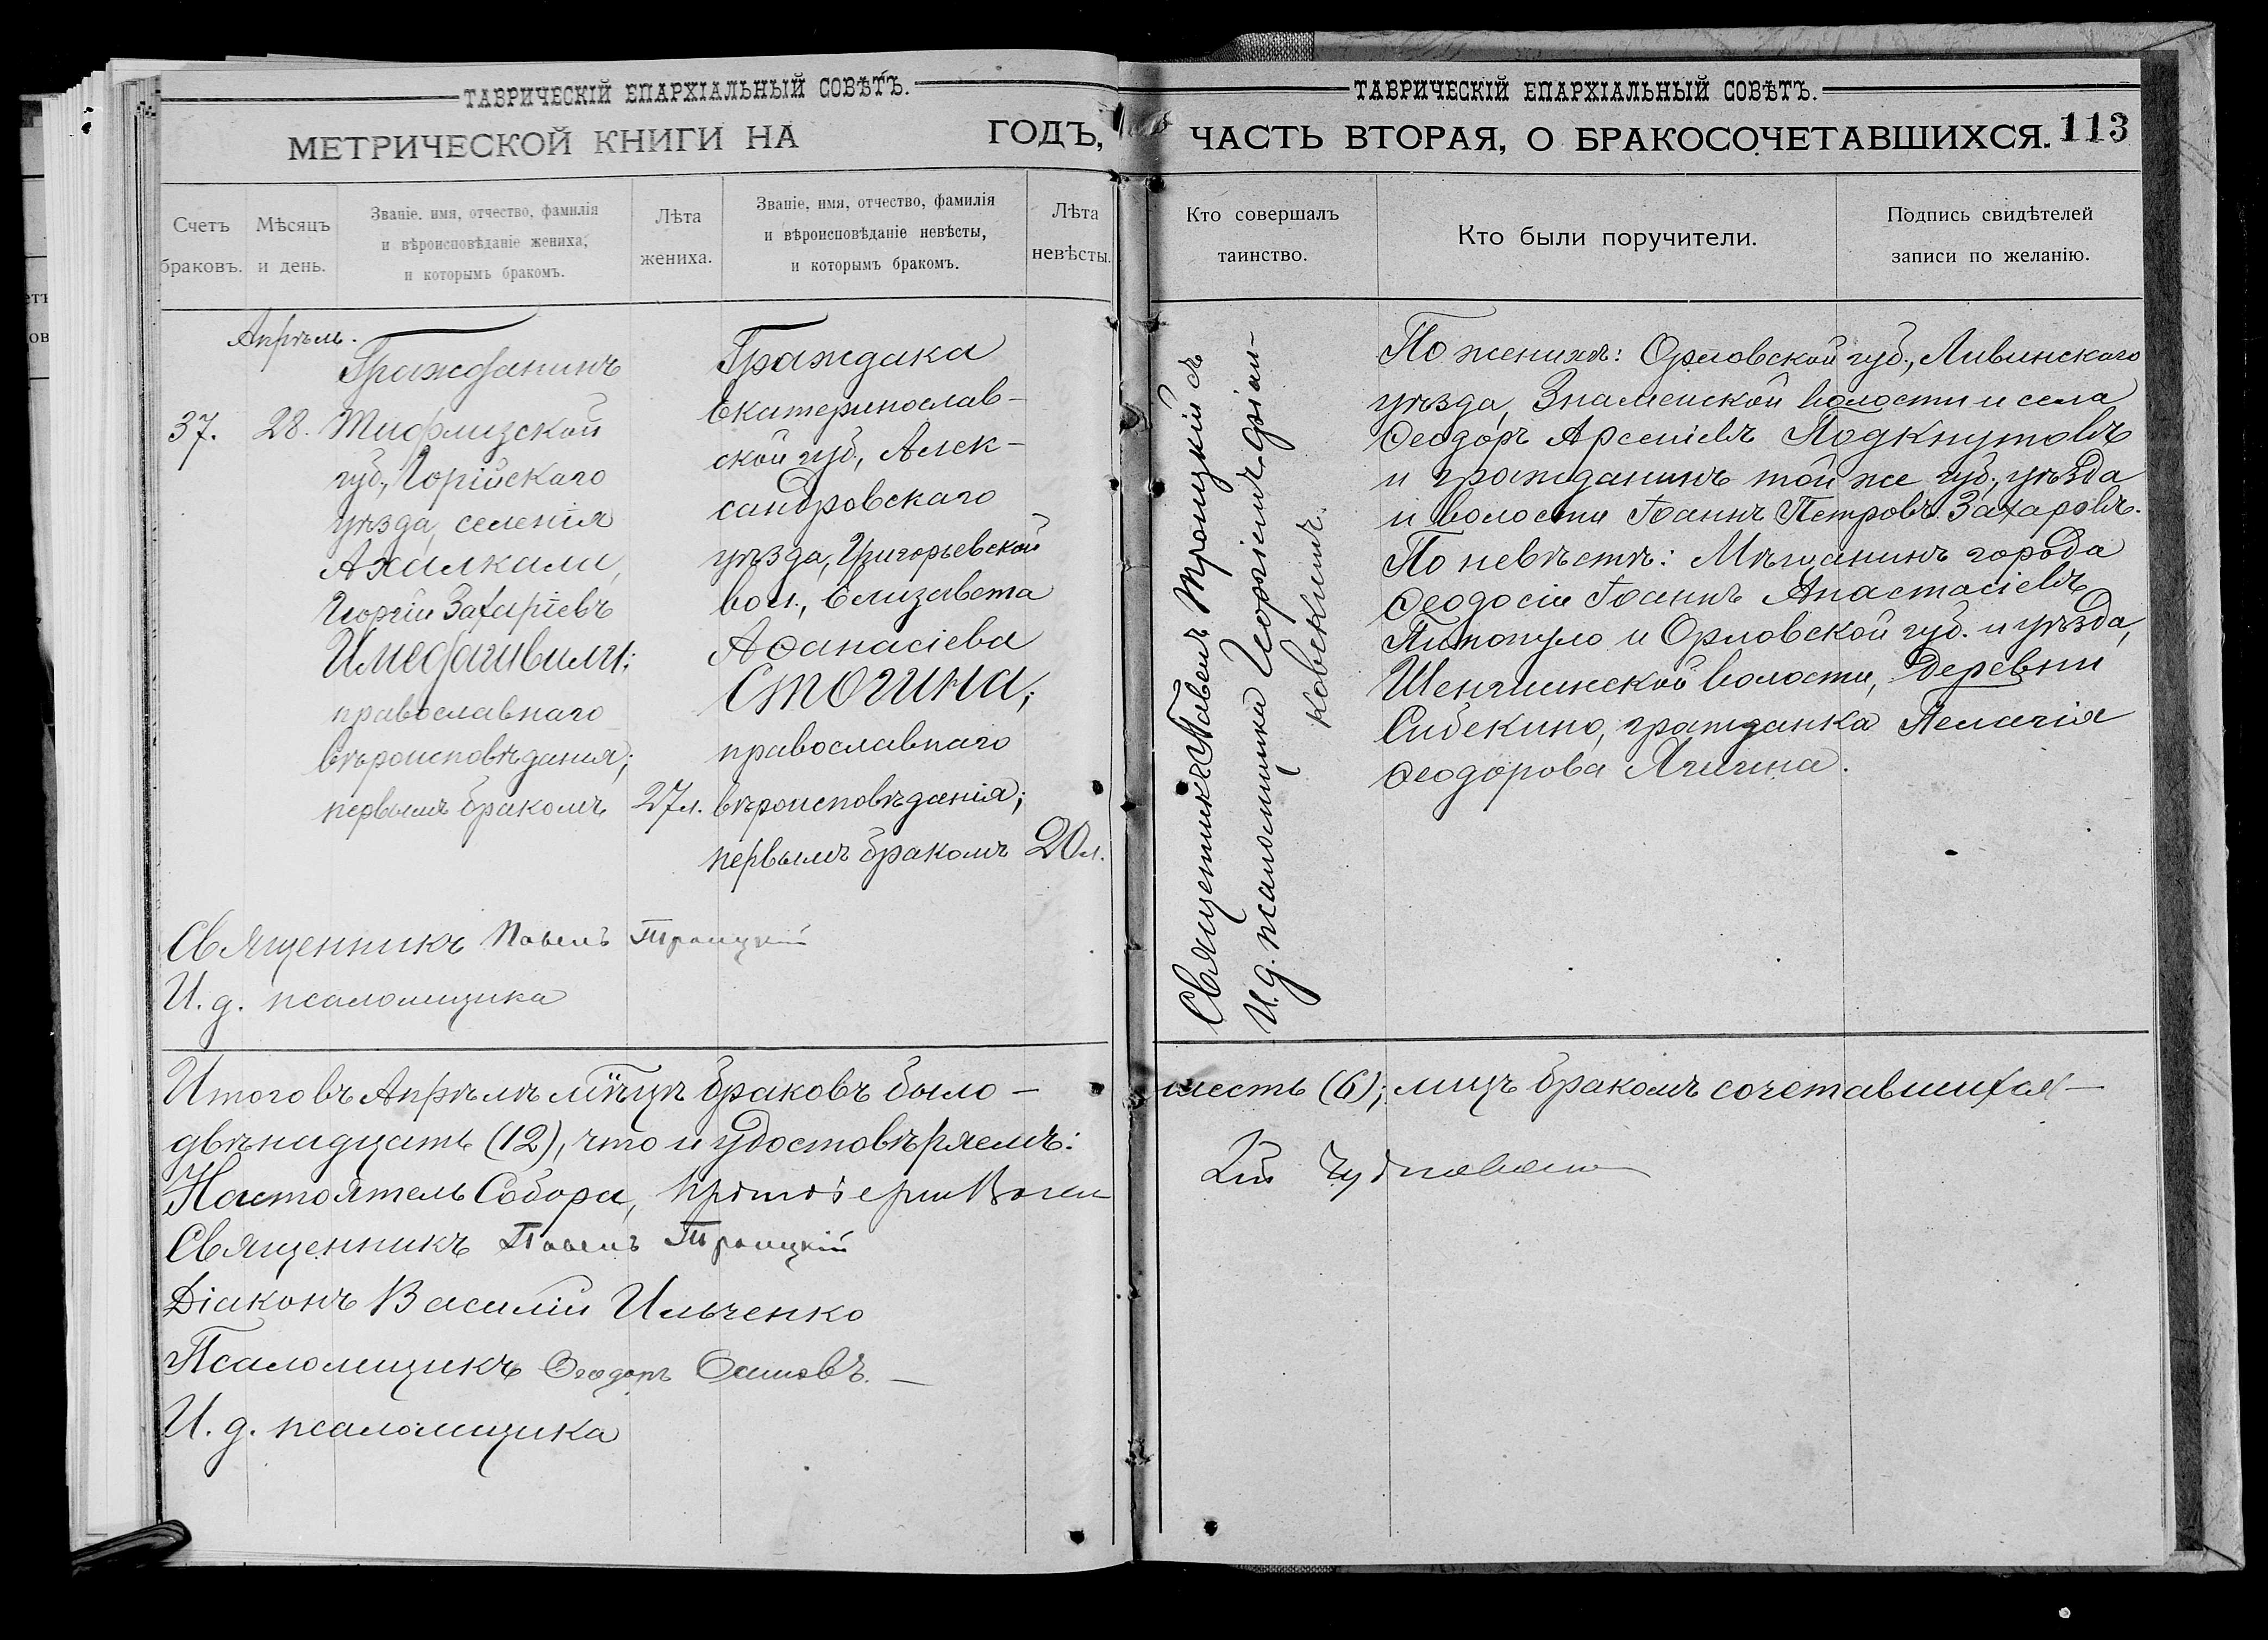 ТАВРИЧЕСКІЙ ЕПАРХІАЛЬНЫЙ СОВѢТЪ.
МЕТРИЧЕСКОЙ КНИГИ НА ГОДЪ,
Счетъ браковъ.
Мѣсяцъ и день.
Званіе, имя, отчество, фамилія
и вѣроисповѣданіе жениха,
и которымъ бракомъ.
Лѣта жениха.
Званіе, имя, отчество, фамилія
и вѣроисповѣданіе невѣсты,
и которымъ бракомъ.
Лѣта невѣсты.
Апрѣль.
37.
28.
Гражданинъ
Тифлизской
губ., Горійскаго
уѣзда, селенія
Ахалкали,
Георгій Захаріевъ
Имедашвили;
православнаго
вѣроисповѣданія;
первымъ бракомъ
27 л.
Граждака
Екатеринослав-
ской губ., Алек-
сандровскаго
уѣзда, Григорьевской
вол., Елизавета
Аѳанасіева
Сточина;
православнаго
вѣроисповѣданія;
первымъ бракомъ
20 л.
Священникъ Павелъ Троицкій
И. д. псаломщика
Итого въ Апрѣлѣ мѣцѣ браковъ было —
двѣнадцать (12), что и удостовѣряемъ:
Настоятель Собора, протоіерей
Священникъ Павелъ Троицкій
Діаконъ Василій Ильченко
Псаломщикъ Ѳеодоръ
И. д. псаломщика
ТАВРИЧЕСКІЙ ЕПАРХІАЛЬНЫЙ СОВѢТЪ.
ЧАСТЬ ВТОРАЯ, О БРАКОСОЧЕТАВШИХСЯ.
113
Кто совершалъ таинство.
Кто были поручители.
Подпись свидѣтелей
записи по желанію.
Священникъ Павелъ Троицкій съ
И. д. псаломщика Георгіемъ
По женихѣ: Орловской губ., Ливинскаго
уѣзда, Знаменской волости и села
Ѳеодоръ Арсеніевъ Подкпутовъ
и гражданинъ той же губ., уѣзда
и волости Іоаннъ Петровъ Захаровъ.
По невѣстѣ: Мѣщанинъ города
Ѳеодосіи Іоаннъ Анастасіевъ
Питопуло и Орловской губ. и уѣзда,
волости, деревни
Сибекино, гражданка Пелагія
Ѳеодорова Ячигина.
шесть (6); лицъ бракомъ сочетавшихся —